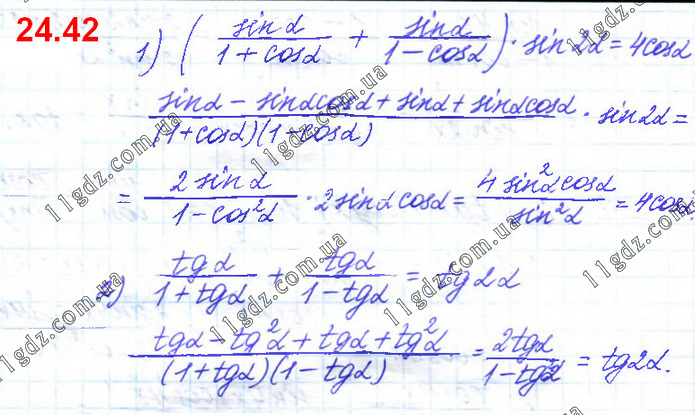 24.42
1) (sinα/(1+cosα) + sinα/(1-cosα)) · sin2α = 4cosα
(sinα - sinαcosα + sinα + sinαcosα)/((1+cosα)(1-cosα)) · sin2α =
= 2sinα/(1-cos²α) · 2sinαcosα = 4sin²αcosα/sin²α = 4cosα.
2) tgα/(1+tgα) + tgα/(1-tgα) = tg2α
(tgα - tg²α + tgα + tg²α)/((1+tgα)(1-tgα)) = 2tgα/(1-tg²α) = tg2α.
11gdz.com.ua
11gdz.com.ua
11gdz.com.ua
11gdz.com.ua
11gdz.com.ua
11gdz.com.ua